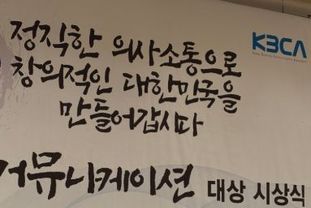 정직한 의사소통으로
KBCA
창의적인 대한민국을
만들어갑시다
커뮤니케이션 대상 시상식